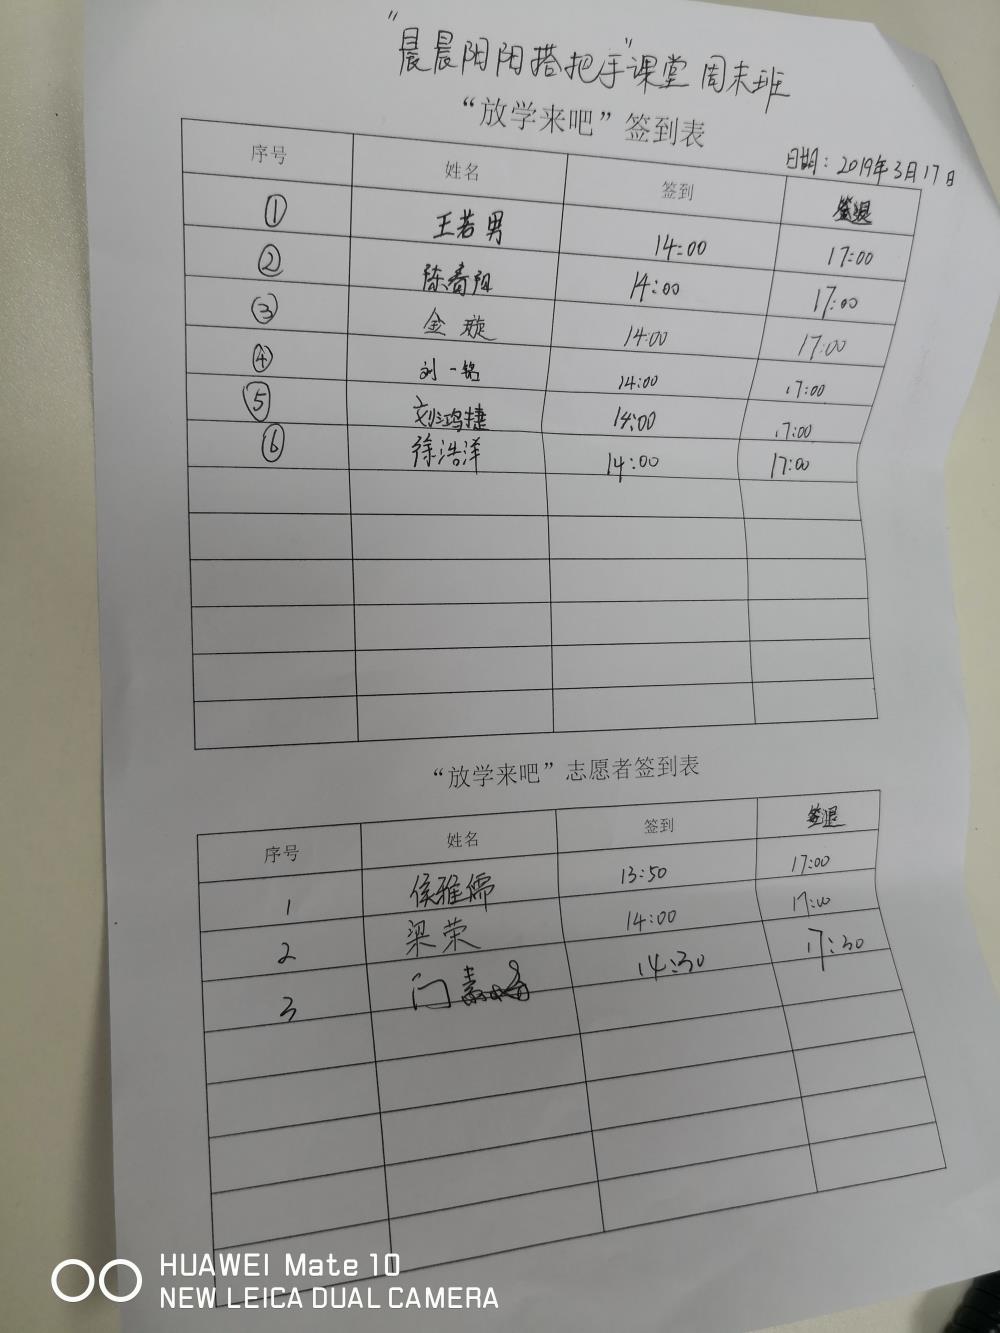 “晨晨阳阳搭把手”课堂 周末班
“放学来吧”签到表
日期：2019年3月17日
序号 姓名 签到 签退
① 王若男 14:00 17:00
② 陈春阳 14:00 17:00
③ 金璇 14:00 17:00
④ 刘一铭 14:00 17:00
⑤ 刘鸿捷 14:00 17:00
⑥ 徐浩洋 14:00 17:00
“放学来吧”志愿者签到表
序号 姓名 签到 签退
1 侯雅儒 13:50 17:00
2 梁荣 14:00 17:00
3 门素 14:30 17:30
HUAWEI Mate 10
NEW LEICA DUAL CAMERA